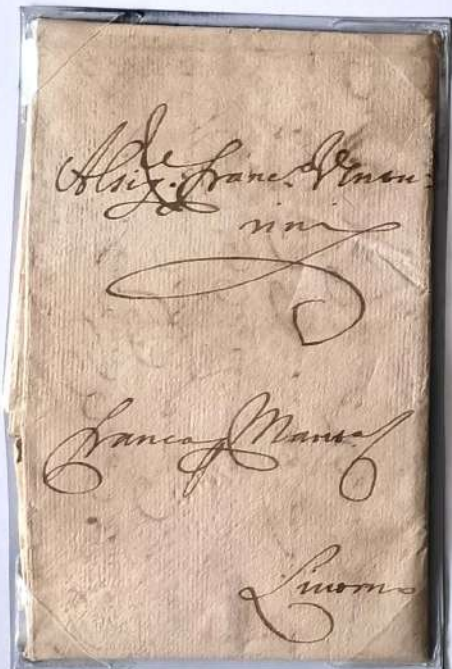 Al Sig.re Franc.o
nini
Franca p Mantoa
Livorno